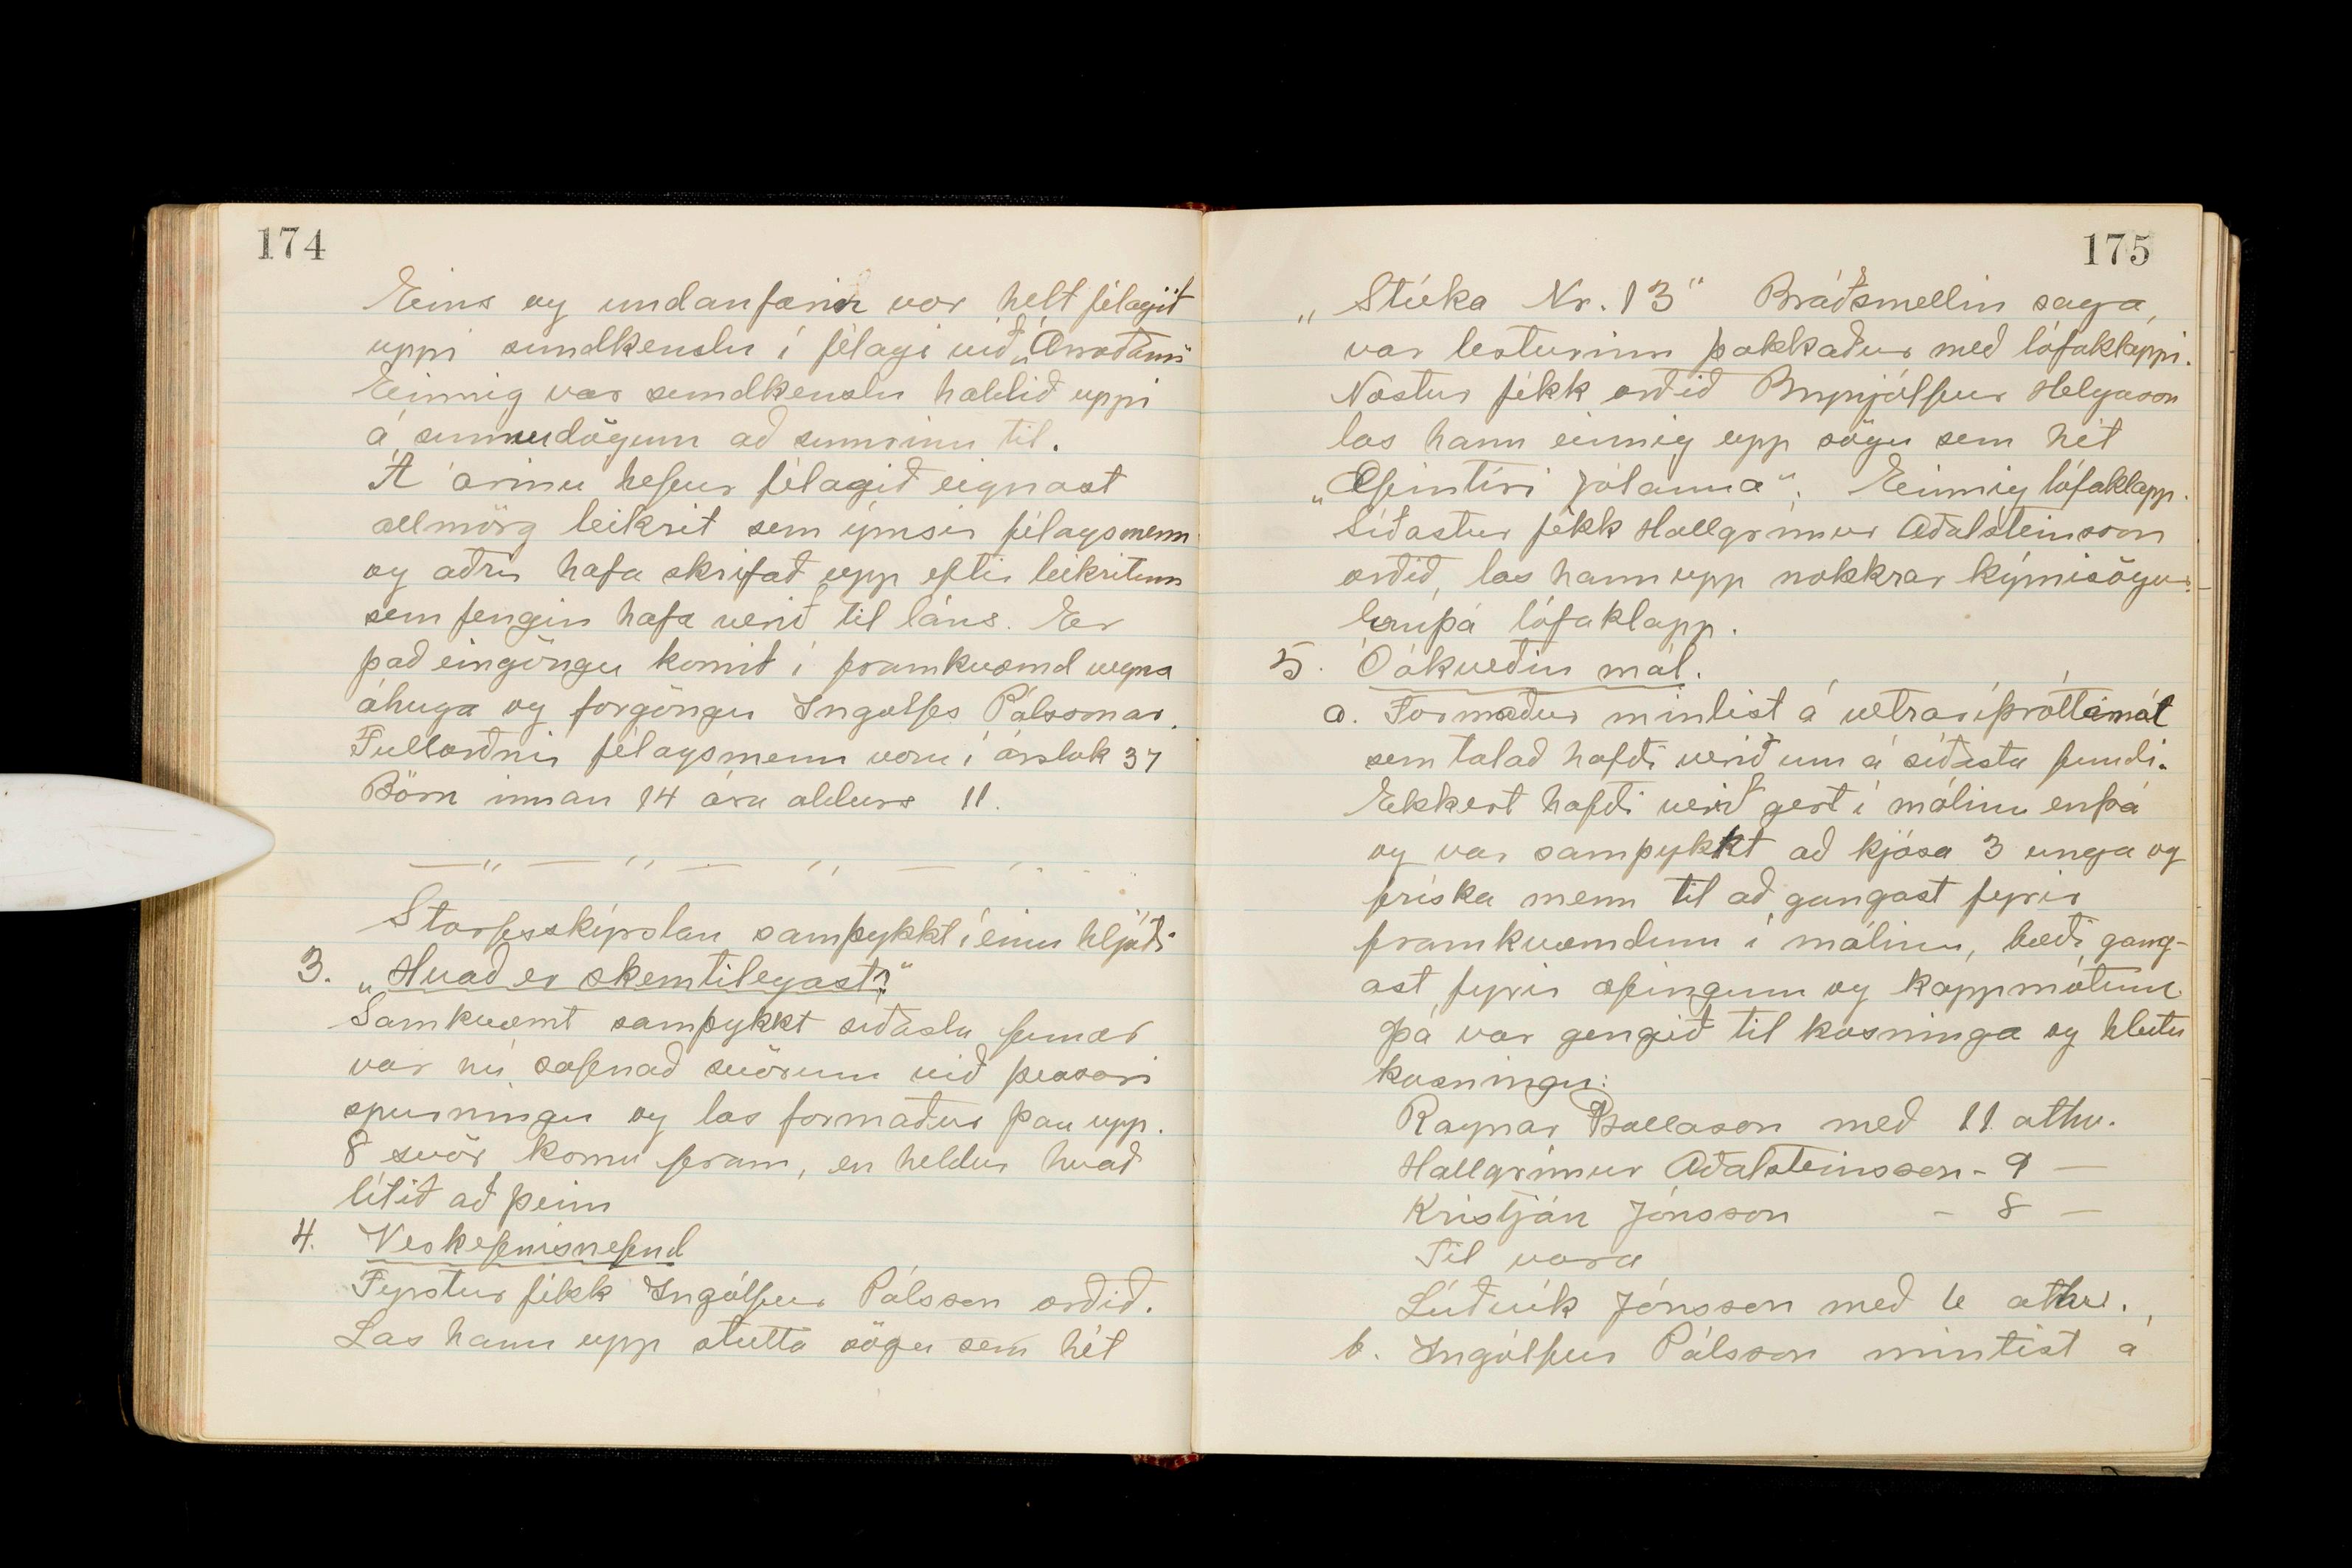 174
Eins og undanfarin vor helt félagið
uppi sundkenslu í félagi við „Árroðann"
Einnig var sundkenslu haldið uppi
á sunnudögum að sumrinu til.
Á árinu hefur félagið eignast
allmörg leikrit sem ýmsir félagsmenn
og aðrir hafa skrifað upp eftir leikritum
sem fengin hafa verið til láns. Er
það eingöngu komið í framkvæmd vegna
áhuga og forgöngu Ingólfs Pálssonar.
Fullorðnir félagsmenn voru í árslok 37
Börn innan 14 ára aldurs 11.
Starfsskýrslan samþykkt í einu hljóði
3. „Hvað er skemtilegast?"
Samkvæmt samþykkt síðasta fundar
var nú safnað svörum við þessari
spurningu og las formaður þau upp.
8 svör komu fram, en heldur hvað
lítið að þeim
4. Verkefnisnefnd
Fyrstur fékk Ingólfur Pálsson orðið.
Las hann upp stutta sögu sem hét
175
„Stúka Nr. 13" Bráðsmellin saga,
var lesturinn þakkaður með lófaklappi.
Næstur fékk orðið Brynjólfur Helgason
las hann einnig upp sögu sem hét
„Æfintíri Jólanna". Einnig lófaklapp.
Síðastur fékk Hallgrímur Aðalsteinsson
orðið, las hann upp nokkrar kýmisögur.
Ennþá lófaklapp.
5. Óákveðin mál.
a. Formaður mintist á vetraríþróttamót
sem talað hafði verið um á síðasta fundi.
Ekkert hafði verið gert í málinu ennþá
og var samþykkt að kjósa 3 unga og
fríska menn til að gangast fyrir
framkvæmdum í málinu, bæði gang-
ast fyrir æfingum og kappmótum.
Þá var gengið til kosninga og hlutu
kosningu:
Ragnar Bollason með 11 atkv.
Hallgrímur Aðalsteinsson - 9 —
Kristján Jónsson - 8 —
Til vara
Lúðvík Jónsson með 6 atkv.
b. Ingólfur Pálsson mintist á